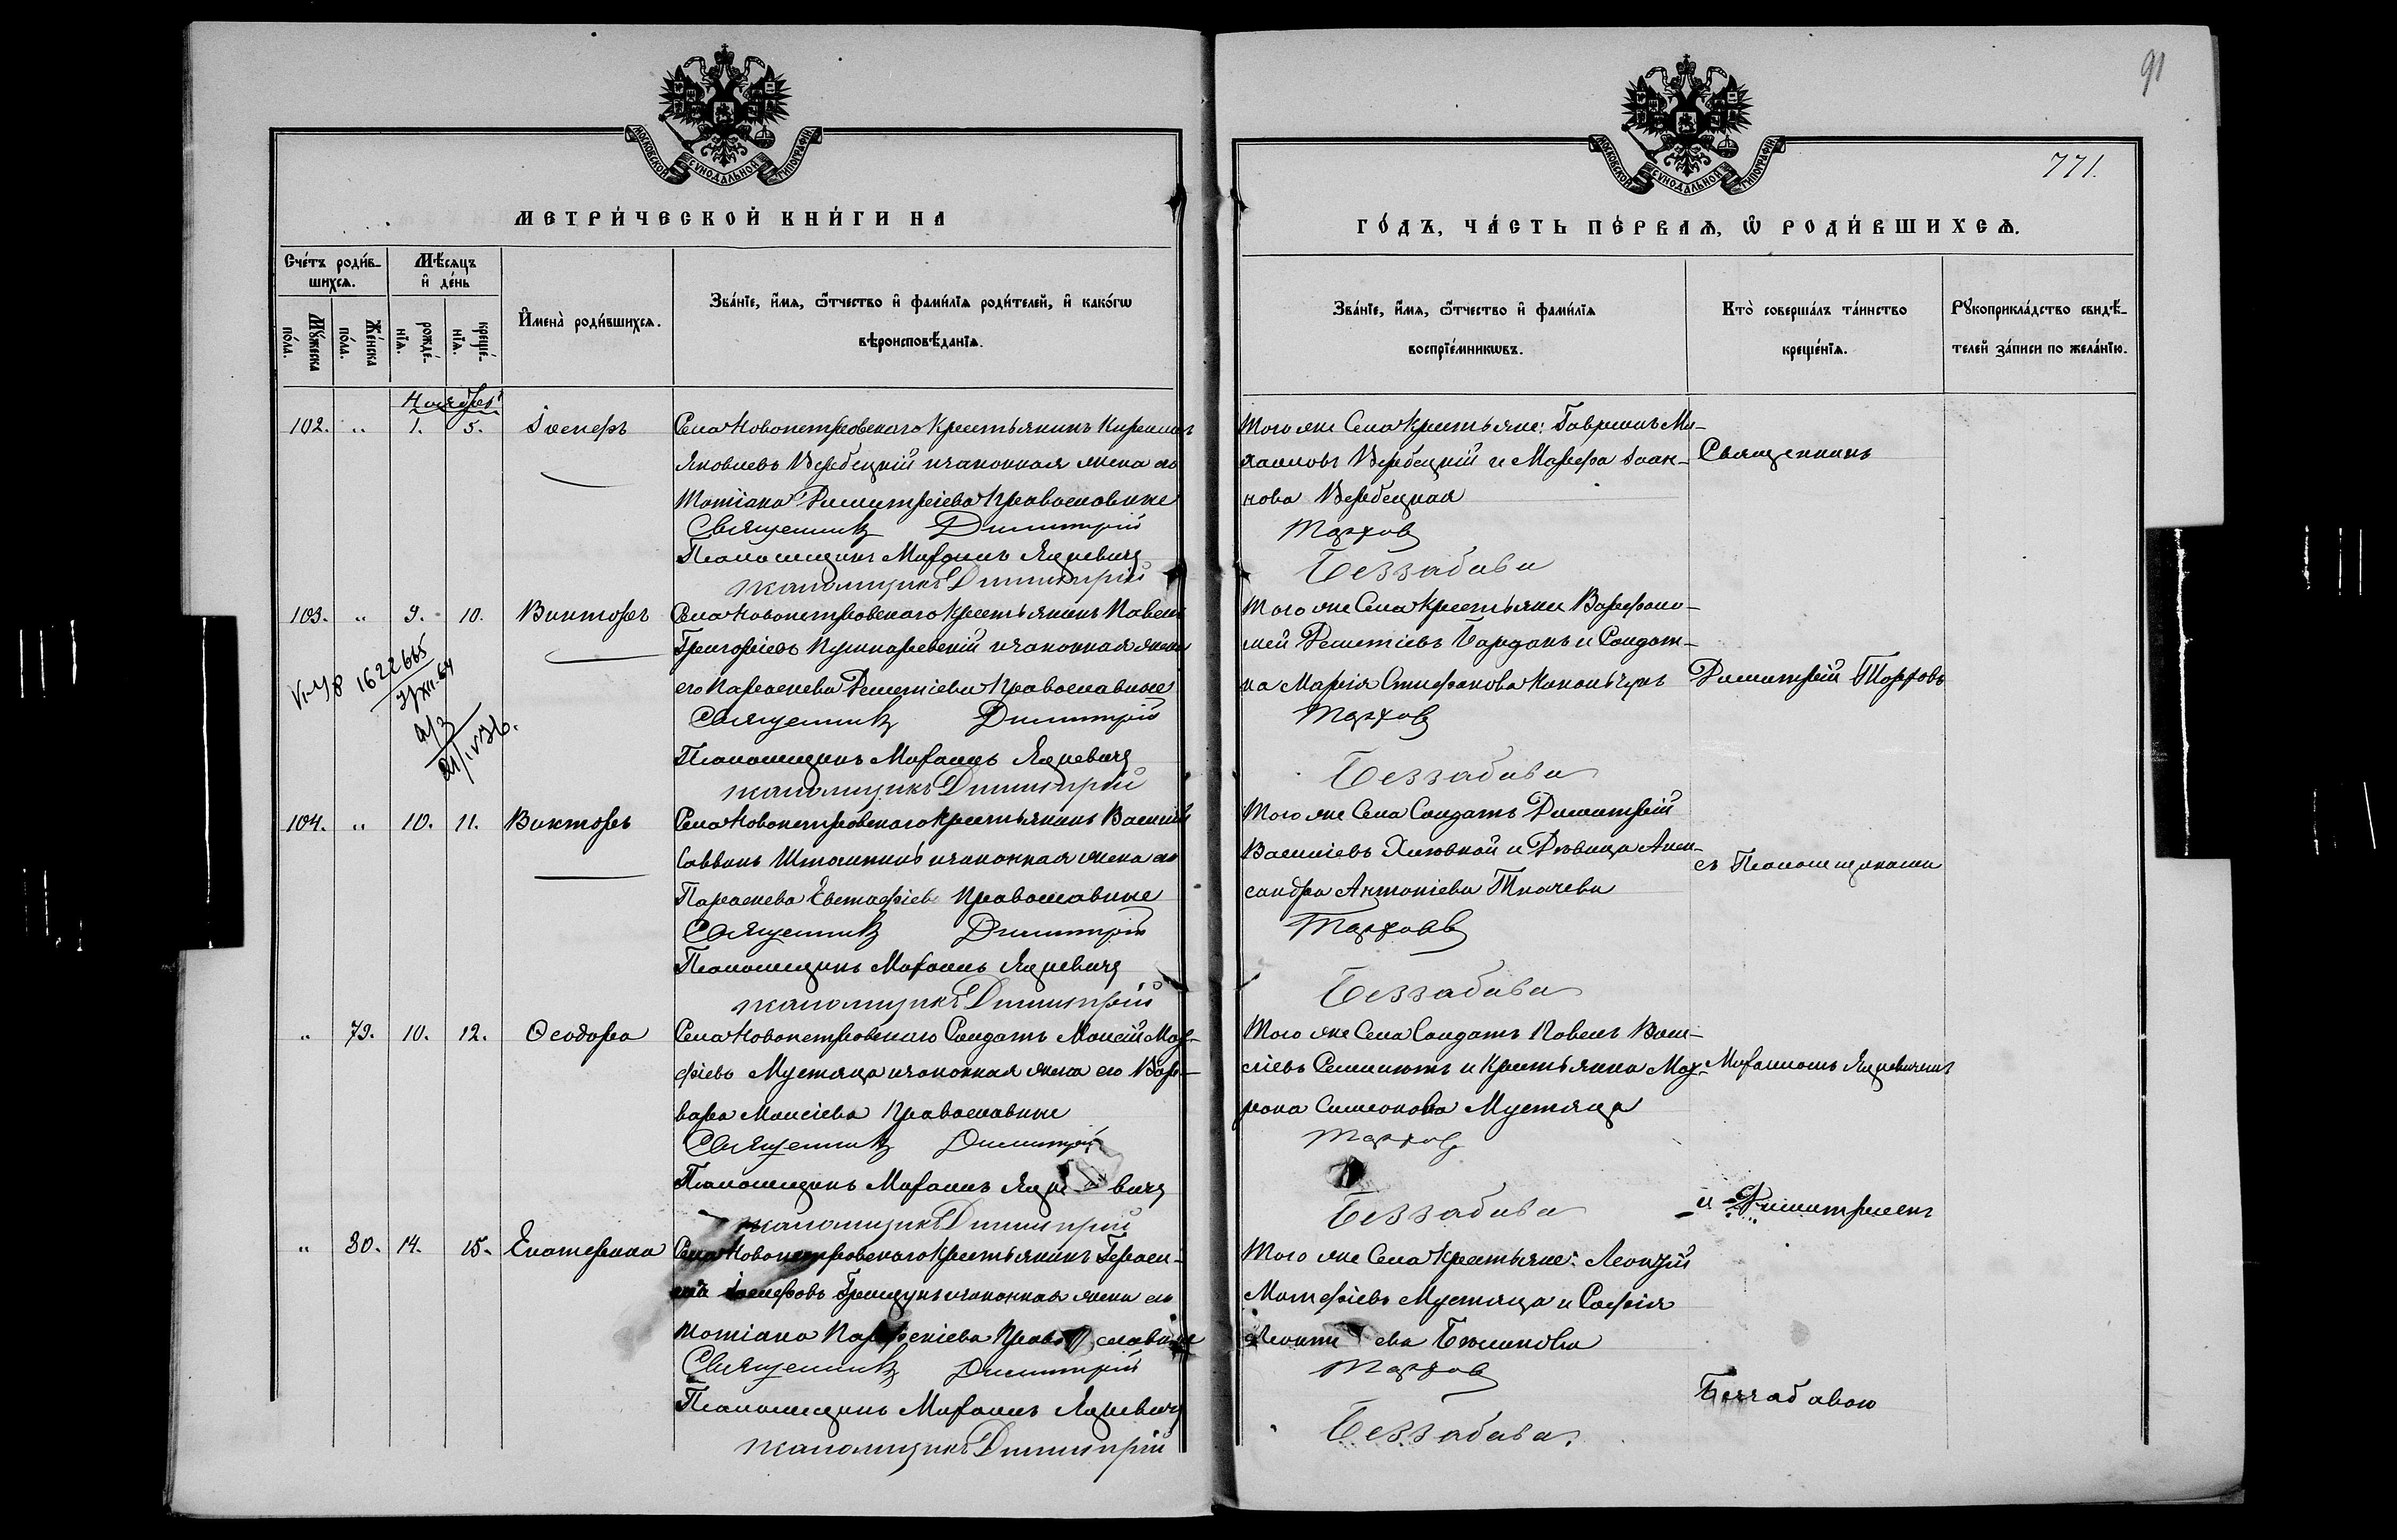 91
771.
МОСКОВСКОЙ СУНОДАЛЬНОЙ ТИПОГРАФІИ
МОСКОВСКОЙ СУНОДАЛЬНОЙ ТИПОГРАФІИ
МЕТРИ́ЧЕСКОЙ КНИ́ГИ НА
ГО́ДЪ, ЧА́СТЬ ПЕ́РВАѦ, Ѽ РОДИ́ВШИХСѦ.
Сче́тъ роди́в-
шихсѧ.
Мѣ́сяцъ
и҆ де́нь
Мꙋ́жеска
по́ла.
Же́нска
по́ла.
рожде́-
нїѧ.
креще́-
нїѧ.
И҆мена̀ роди́вшихсѧ.
Зва́нїе, и҆́мя, ѻ҆́тчество и҆ фами́лїѧ роди́телей, и҆ како́гѡ
вѣроисповѣ́данїѧ.
Зва́нїе, и҆́мя, ѻ҆́тчество и҆ фами́лїѧ
воспрїе́мникѡвъ.
Кто̀ соверша́лъ та́инство
креще́нїѧ.
Рꙋкоприкла́дство свидѣ́-
телей за́писи по жела́нїю.
Ноябрь
102. " 1. 5. Іосифъ
Села Новопетровскаго крестьянинъ Кириллъ
Яковлевъ Вербецкій и законная жена его
Татіана Димитріева православные
Священникъ Димитрій
Псаломщикъ Михаилъ Яцкевичъ
псаломщикъ Димитрій
Того же Села крестьяне: Гавріилъ Ми-
хаиловъ Вербецкій и Марфа Іоан-
нова Вербецкая
Тарховъ
Беззабава
Священникъ
103. " 9. 10. Викторъ
Села Новопетровскаго крестьянинъ Павелъ
Григоріевъ Кушнаревскій и законная жена
его Параскева Дементіева православные
Священникъ Димитрій
Псаломщикъ Михаилъ Яцкевичъ
псаломщикъ Димитрій
Того же Села крестьяне Варфоло-
мей Дементіевъ Бардакъ и Солдат-
ка Марія Стефанова
Тарховъ
Беззабава
Димитрій Тарховъ
1622665
104. " 10. 11. Викторъ
Села Новопетровскаго крестьянинъ Василій
Саввинъ и законная жена его
Параскева Евстафіева православные
Священникъ Димитрій
Псаломщикъ Михаилъ Яцкевичъ
псаломщикъ Димитрій
Того же Села Солдатъ Димитрій
Василіевъ и Дѣвица Алек-
сандра Антоніева Ткачева
Тарховъ
Беззабава
съ Псаломщиками
" 79. 10. 12. Ѳеодора
Села Новопетровскаго Солдатъ Моисей Мат-
фіевъ Мустяца и законная жена его Вар-
вара Моисіева православные
Священникъ Димитрій
Псаломщикъ Михаилъ Яцкевичъ
псаломщикъ Димитрій
Того же Села Солдатъ Павелъ Васи-
ліевъ и Крестьянка Мат-
рона Симеонова Мустяца
Тарховъ
Беззабава
Михаиломъ Яцкевичемъ
и Димитріемъ
" 80. 14. 15. Екатерина
Села Новопетровскаго крестьянинъ Гераси-
мъ Іосифовъ Грищукъ и законная жена его
Татіана Парфеніева Православные
Священникъ Димитрій
Псаломщикъ Михаилъ Яцкевичъ
псаломщикъ Димитрій
Того же Села крестьяне: Леонтій
Матфіевъ Мустяца и Софія
Тарховъ
Беззабава.
Беззабавою